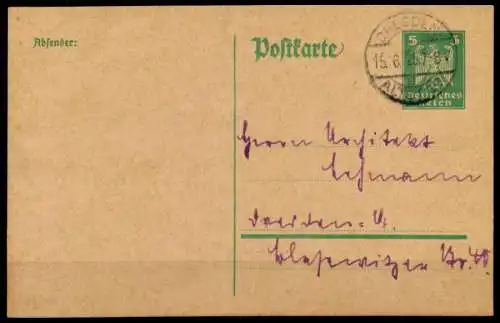 Absender:
Postkarte
DRESDEN
15. 6.
ALTST.
5 5
Deutsches
Reich
Herrn Architekt
Lehmann
Dresden-A.
Blasewitzer Str. 40